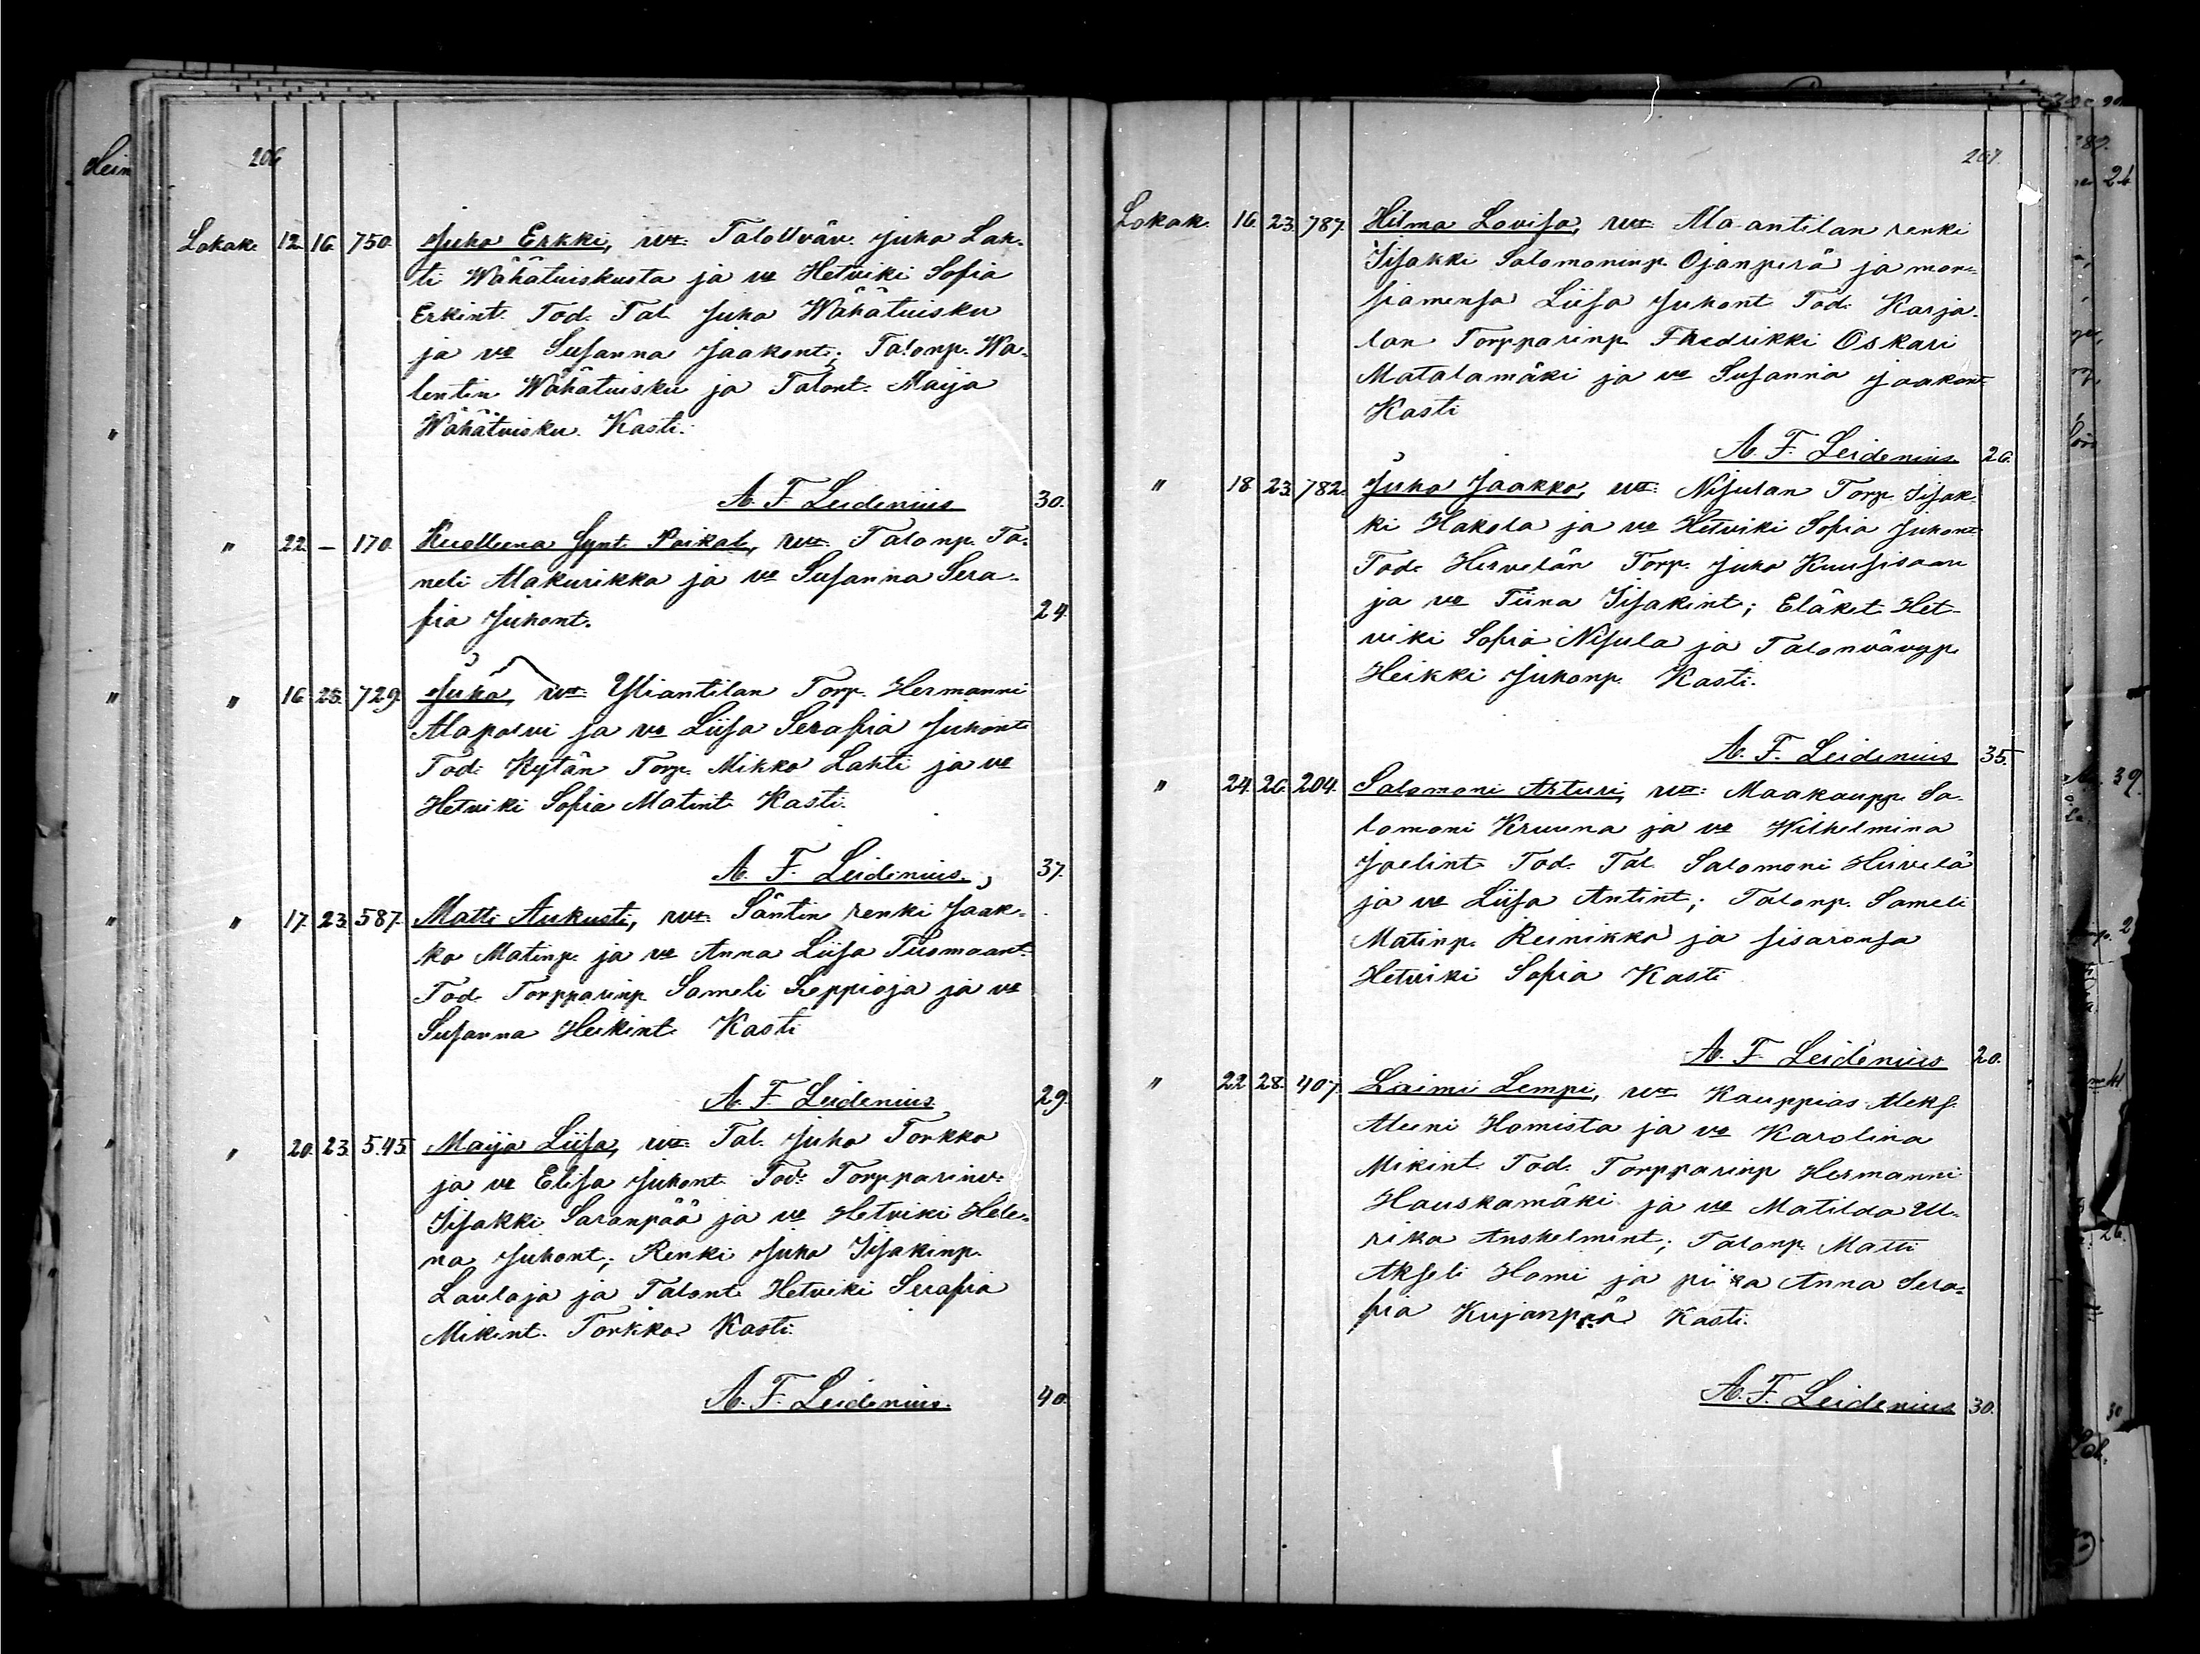 206
Lokak. 12. 16. 750. Juho Erkki, vv: Talollväv. Juho Lah-
ti Wähätuiskusta ja vo Hetviki Sofia
Erkint. Tod. Tal. Juho Wähätuisku
ja vo Susanna Jaakont; Talonp. Wa-
lentin Wähätuisku ja Talont. Maija
Wähätuisku. Kasti:
A. F. Leidenius 30.
" 22. – 170. Kuolleena Synt. Poikal., vv: Talonp. Ta-
neli Alakurikka ja vo Susanna Sera-
fia Juhont. 24.
" 16. 23. 729. Juho, vv: Yliantilan Torp. Hermanni
Alapolvi ja vo Liisa Serafia Juhont.
Tod: Kytän Torp. Mikko Lahti ja vo
Hetviki Sofia Matint. Kasti:
A. F. Leidenius. 37.
" 17. 23. 587. Matti Aukusti, vv: Säntin renki Jaak-
ko Matinp. ja vo Anna Liisa Tuomaant.
Tod. Torpparinp. Sameli Leppioja ja vo
Susanna Heikint. Kasti
A. F. Leidenius 29.
" 20. 23. 545. Maija Liisa, vv: Tal. Juho Torkko
ja vo Elisa Juhont. Tod: Torpparinv.
Iisakki Saranpää ja vo Hetviki Hele-
na Juhont; Renki Juho Iisakinp.
Laulaja ja Talont. Hetviki Serafia
Mikint. Torkko. Kasti:
A. F. Leidenius. 40.
207.
Lokak. 16. 23. 787. Hilma Lovisa, vv: Ala-antilan renki
Iisakki Salomoninp. Ojanperä ja mor-
siamensa Liisa Juhont. Tod. Karja-
lan Torpparinp. Fredrikki Oskari
Matalamäki ja vo Susanna Jaakont.
Kasti
A. F. Leidenius. 26.
" 18. 23. 782. Juho Jaakko, vv: Nisulan Torp. Iisak-
ki Hakola ja vo Hetviki Sofia Juhont.
Tod. Hirvelän Torp. Juho Kuusisaari
ja vo Tiina Iisakint; Eläket. Het-
viki Sofia Nisula ja Talonvävyp.
Heikki Juhonp. Kasti.
A. F. Leidenius 35.
" 24. 26. 204. Salomoni Arturi, vv: Maakaupp. Sa-
lomoni Kruuna ja vo Wilhelmina
Joelint. Tod. Tal. Salomoni Hirvelä
ja vo Liisa Antint; Talonp. Sameli
Matinp. Reinikka ja sisarensa
Hetviki Sofia Kasti
A. F. Leidenius 20.
" 22. 28. 407. Laimi Lempi, vv: Kauppias Aleks.
Aleni Homista ja vo Karolina
Mikint. Tod. Torpparinp. Hermanni
Hauskamäki ja vo Matilda Ul-
rika Anshelmint; Talonp. Matti
Akseli Homi ja piika Anna Sera-
fia Kujanpää Kasti.
A. F. Leidenius 30.